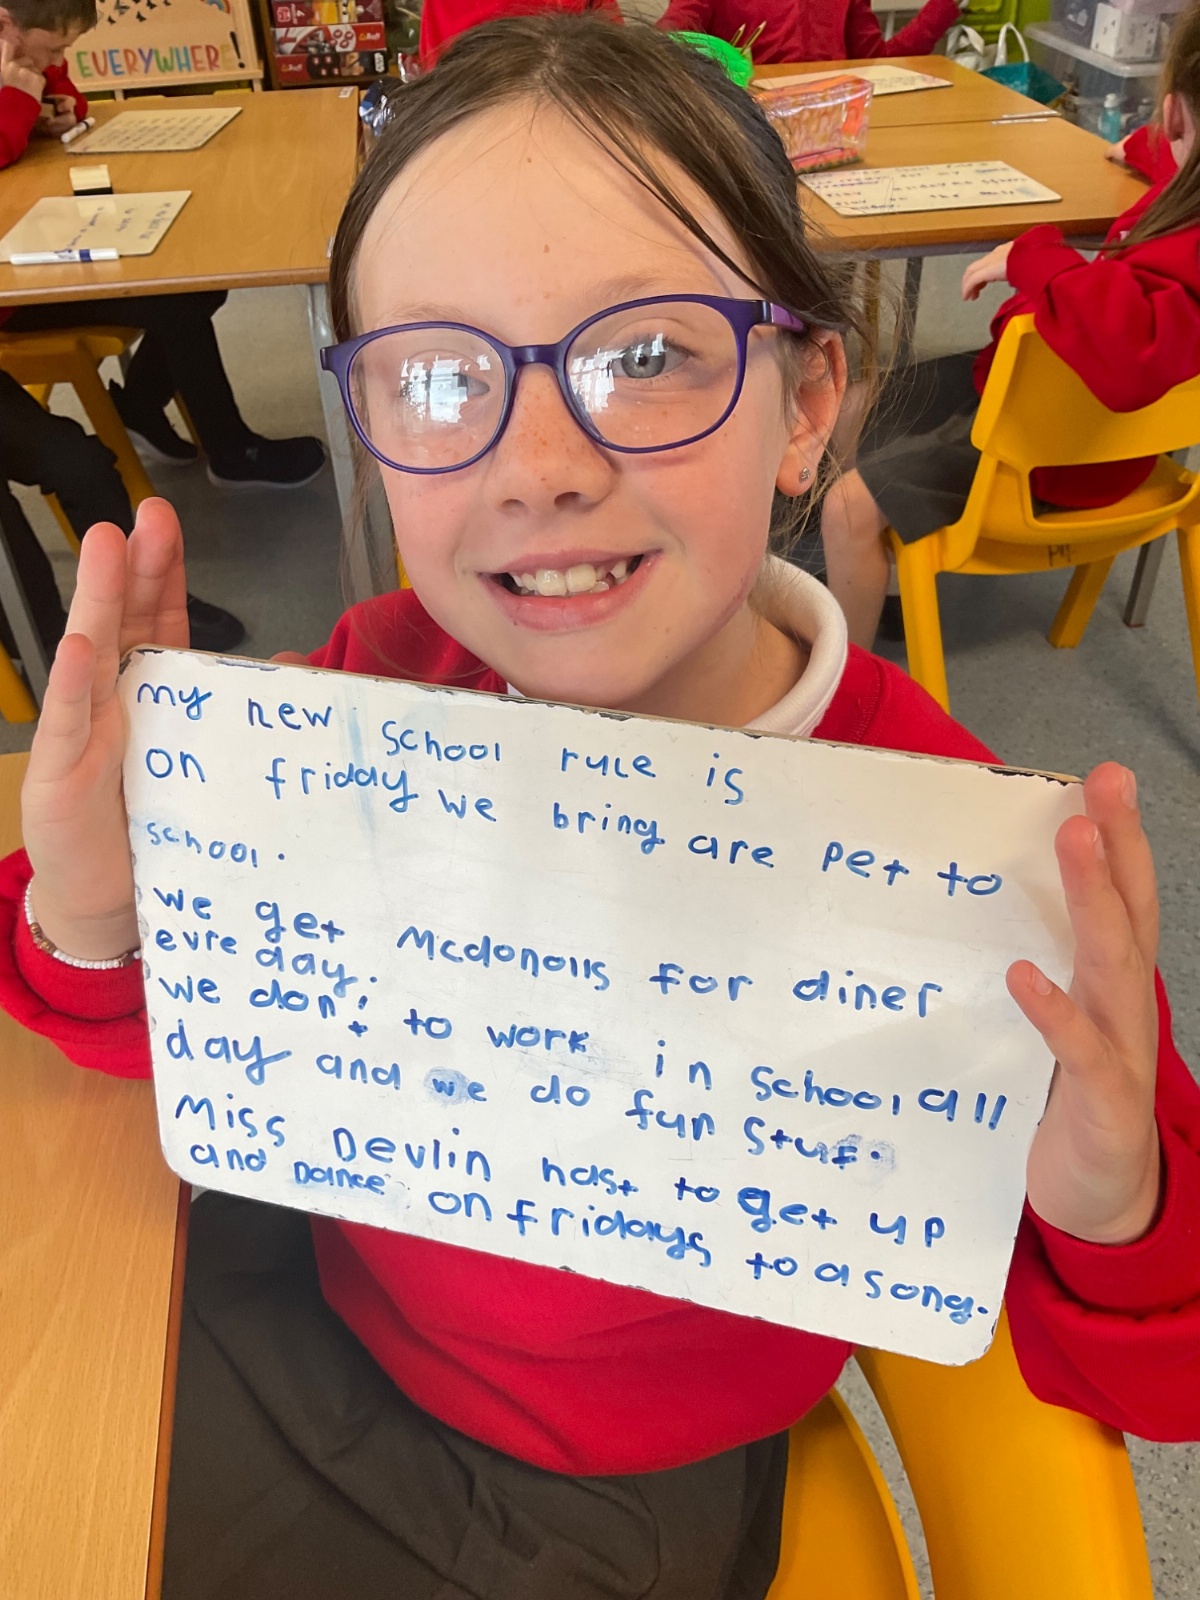 EVERYWHERE!
my new school rule is
on friday we bring are pet to
school.
we get Mcdonolls for diner
evre day.
we don't to work in school all
day and we do fun stuf.
Miss Devlin hast to get up
and Dance on fridays to a song.